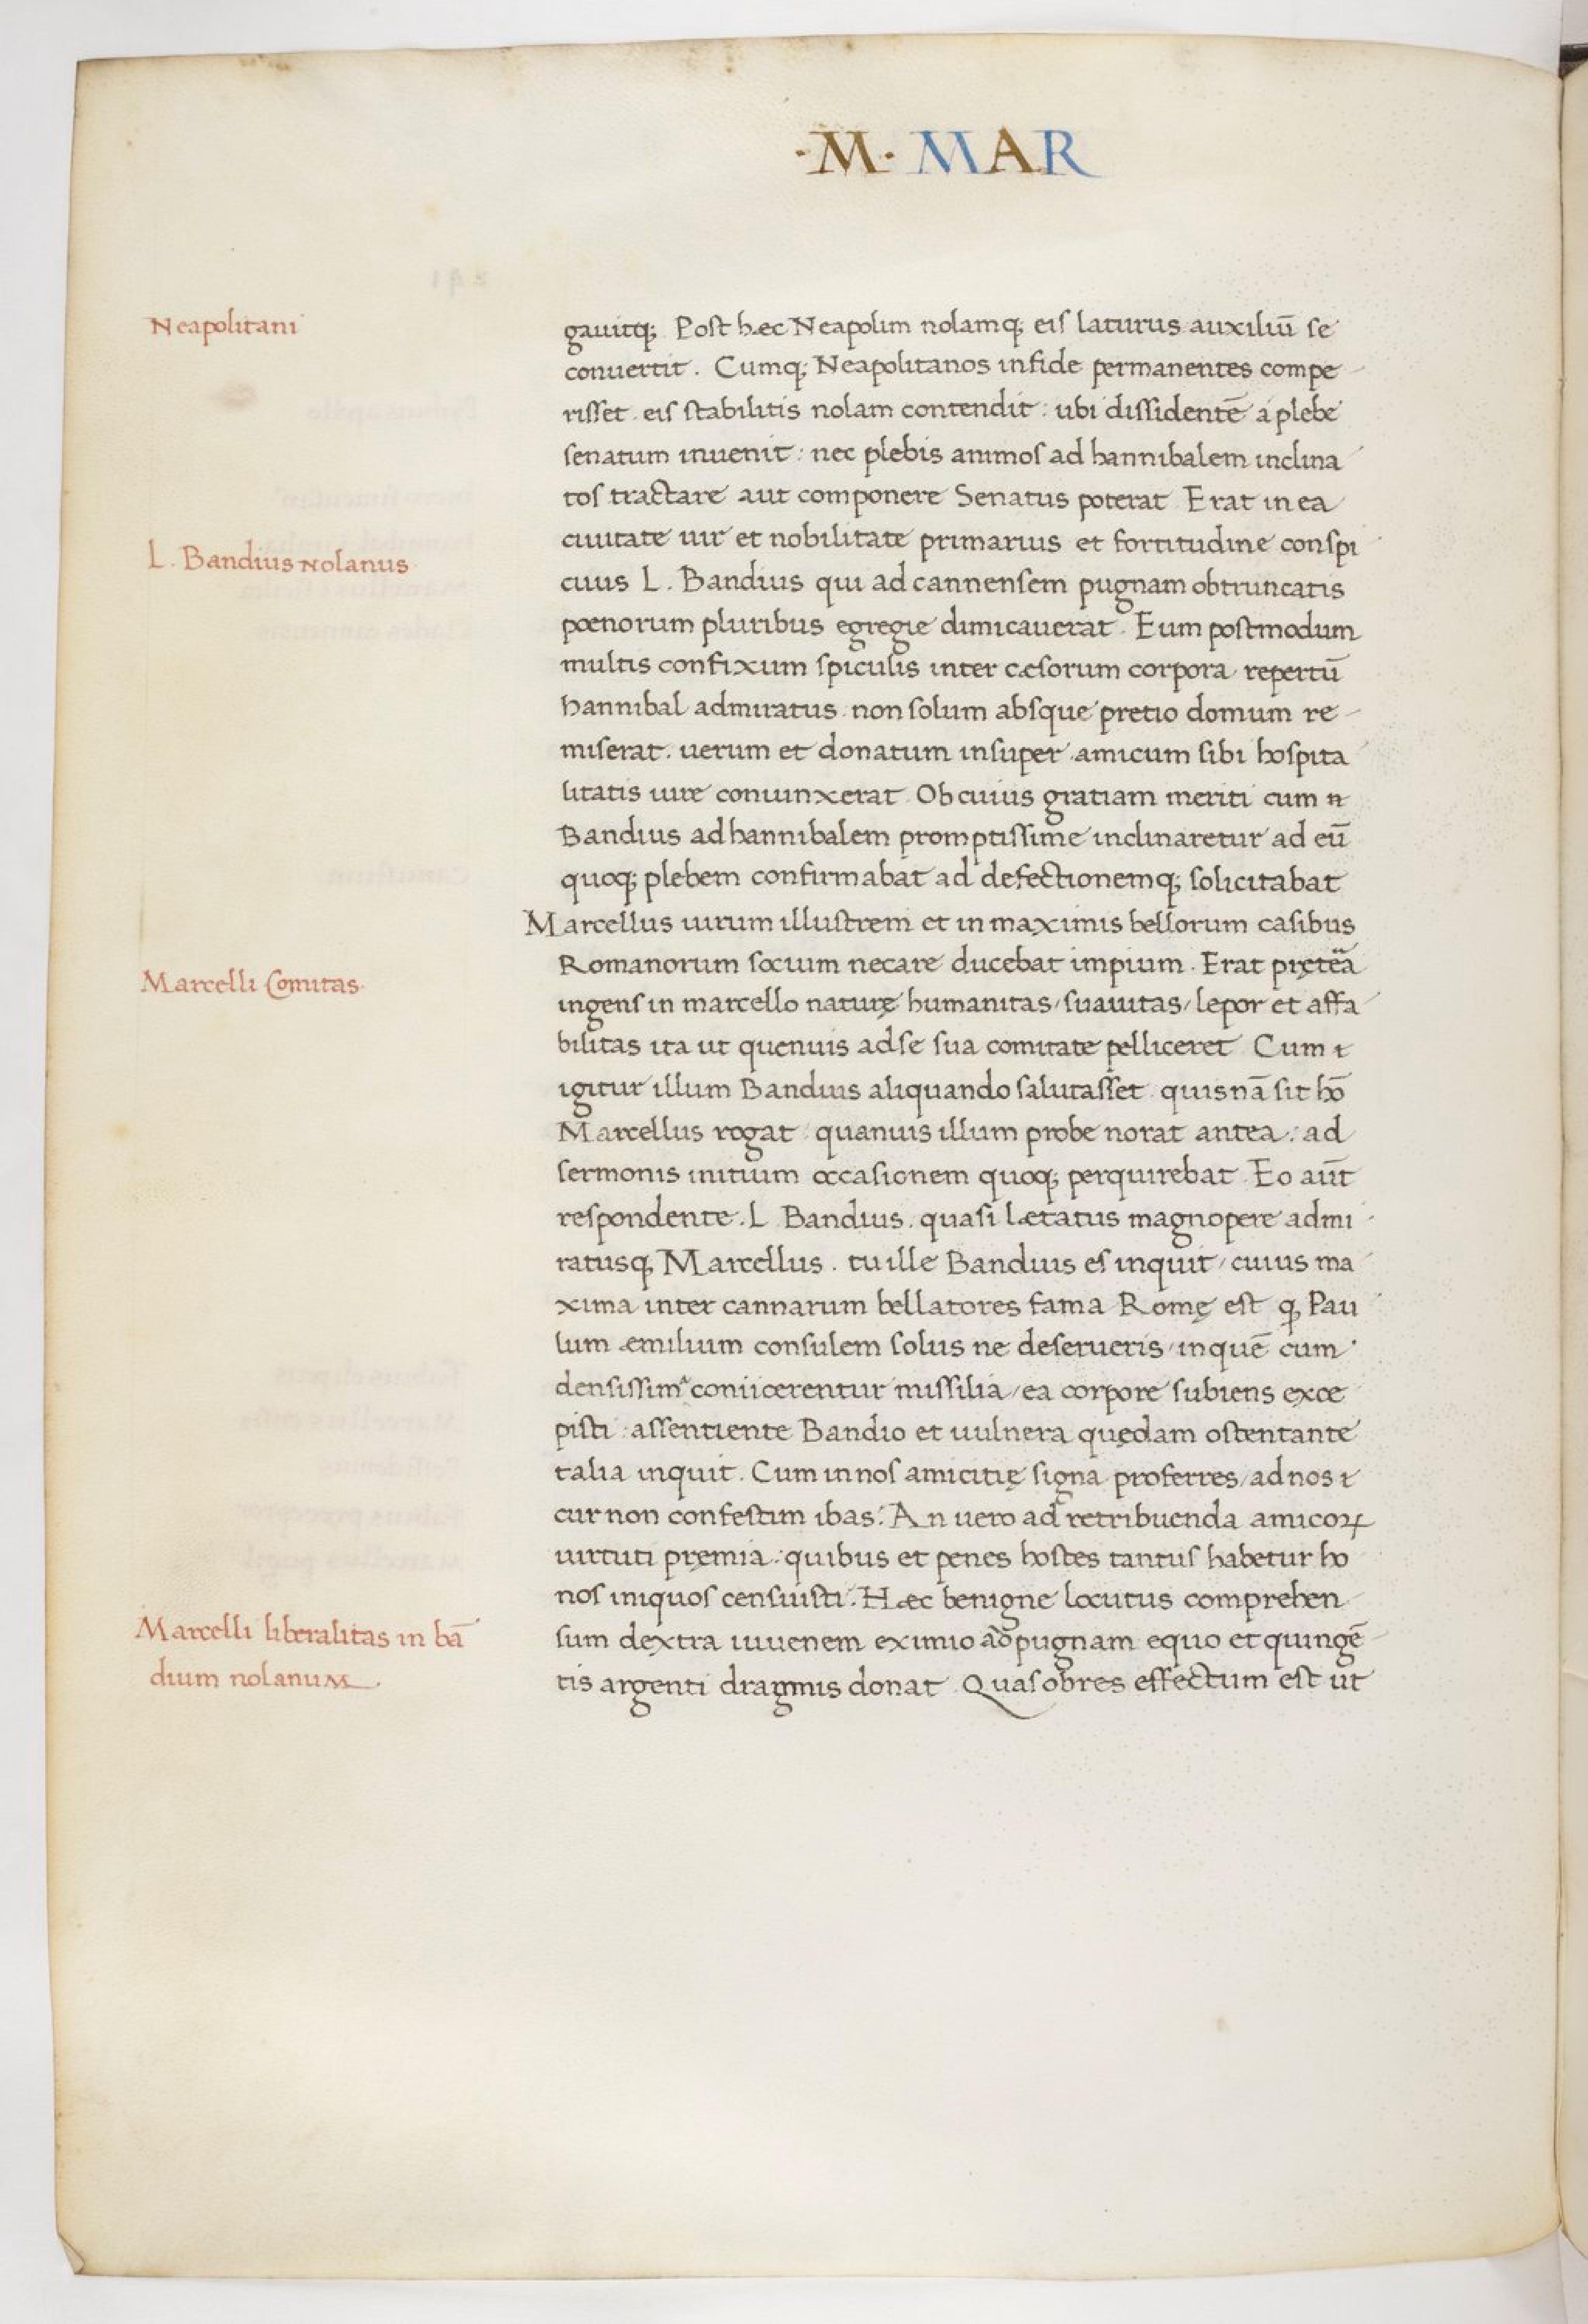 ·M· MAR
Neapolitani
gauitq; Post hæc Neapolim nolamq; eis laturus auxiliū se
conuertit. Cumq; Neapolitanos in fide permanentes compe-
risset eis stabilitis nolam contendit: ubi dissidentē a plebe
senatum inuenit: nec plebis animos ad hannibalem inclina
tos tractare aut componere Senatus poterat Erat in ea
ciuitate uir et nobilitate primarius et fortitudine conspi
L. Bandius nolanus
cuus L. Bandius qui ad cannensem pugnam obtruncatis
pœnorum pluribus egregie dimicauerat. Eum postmodum
multis confixum spiculis inter cæsorum corpora repertū
hannibal admiratus non solum absque pretio domum re-
miserat. uerum et donatum insuper amicum sibi hospita
litatis iure coniunxerat Ob cuius gratiam meriti cum n
Bandius ad hannibalem promptissime inclinaretur ad eū
quoq; plebem confirmabat ad defectionemq; solicitabat
Marcellus uirum illustrem et in maximis bellorum casibus
Romanorum socium necare ducebat impium. Erat pręteā
Marcelli Comitas.
ingens in marcello naturę humanitas/ suauitas/ lepor et affa
bilitas ita ut quenuis ad se sua comitate pelliceret Cum i
igitur illum Bandius aliquando salutasset quisnā sit hō
Marcellus rogat: quanuis illum probe norat antea: ad
sermonis initium occasionem quoq; perquirebat. Eo aūt
respondente. L Bandius. quasi lætatus magnopere admi-
ratusq; Marcellus. tu ille Bandius es inquit/ cuius ma
xima inter cannarum bellatores fama Romę est q; Pau
lum æmilium consulem solus ne deserueris/ in quē cum
densissima coniicerentur missilia/ ea corpore subiens exce
pisti: assentiente Bandio et uulnera quędam ostentante
talia inquit. Cum in nos amicitię signa proferres/ ad nos i
cur non confestim ibas: An uero ad retribuenda amicoꝝ
uirtuti pręmia: quibus et penes hostes tantus habetur ho
nos iniquos censuisti: Hæc benigne locutus comprehen
Marcelli liberalitas in bā
dium nolanum.
sum dextra iuuenem eximio ad pugnam equo et quingē-
tis argenti dragmis donat Quas ob res effectum est ut